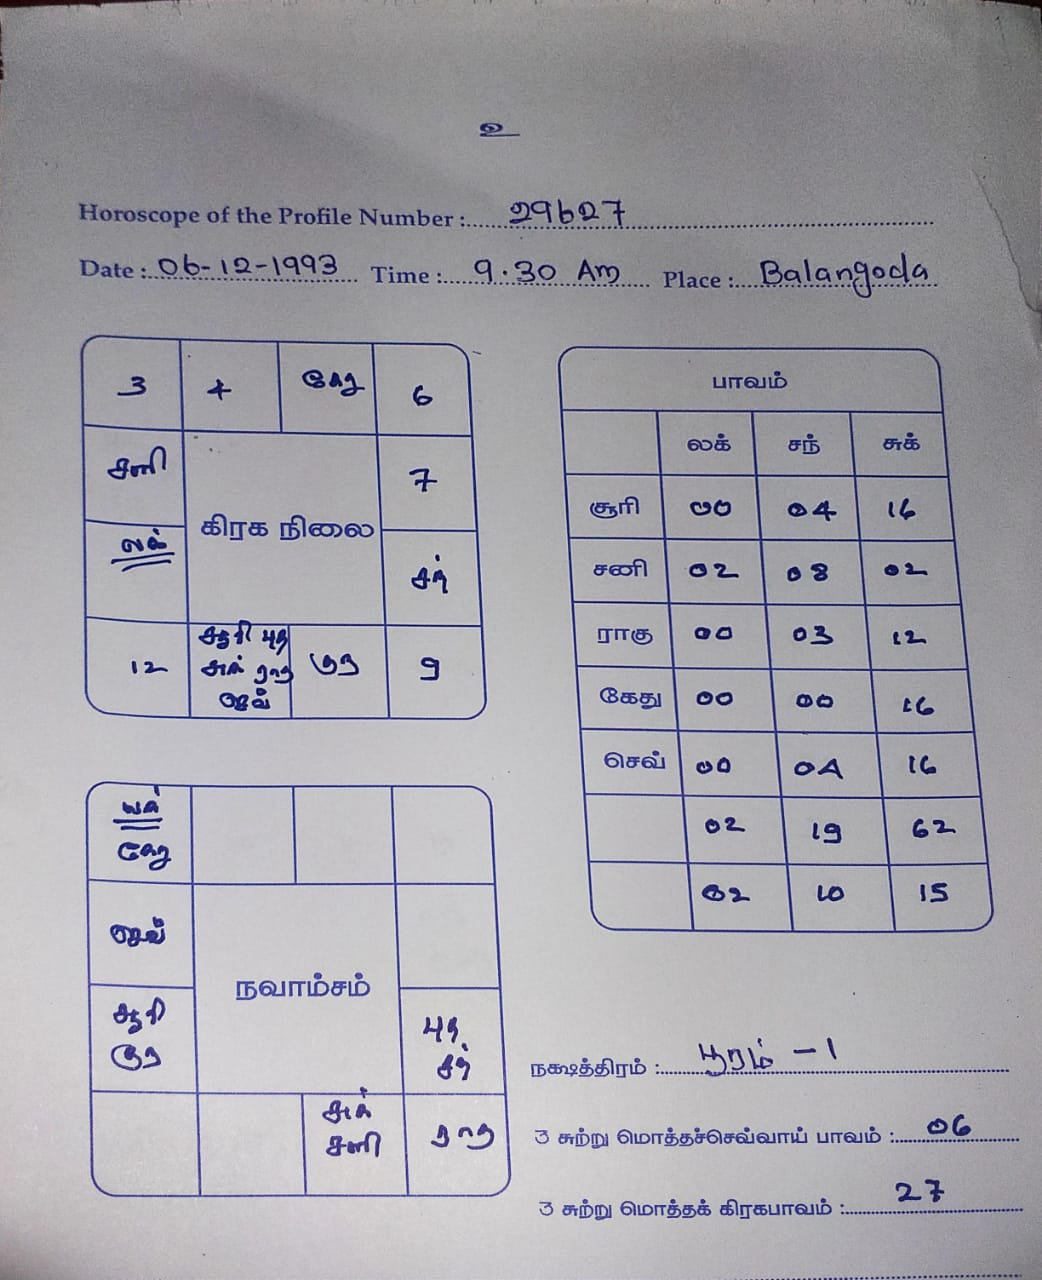 உ
Horoscope of the Profile Number : 29627
Date : 06-12-1993 Time : 9.30 Am Place : Balangoda
3 4 கேது 6
சனி 7
கிரக நிலை
லக் சந்
12 சூரி புத சுக் ராகு செவ் குரு 9
பாவம்
லக் சந் சுக்
சூரி 00 04 16
சனி 02 08 02
ராகு 00 03 12
கேது 00 00 16
செவ் 00 04 16
02 19 62
02 10 15
லக்
கேது
செவ்
நவாம்சம்
சூரி
குரு
புத
சந்
சுக்
சனி
ராகு
நக்ஷத்திரம் : பூரம் - 1
3 சுற்று மொத்தச்செவ்வாய் பாவம் : 06
3 சுற்று மொத்தக் கிரகபாவம் : 27